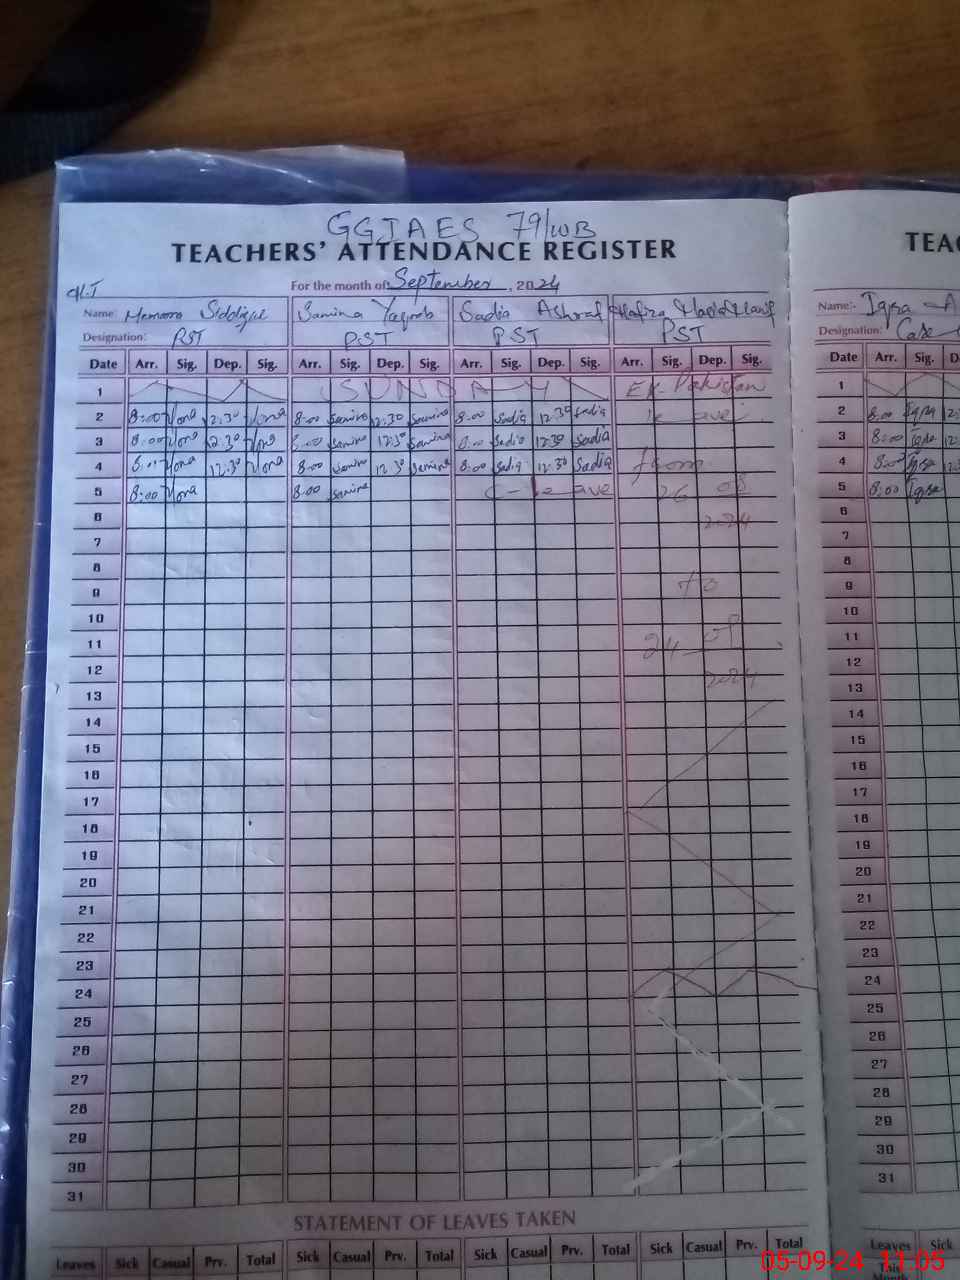 79/WB
TEACHERS' ATTENDANCE REGISTER
TEA
For the month of: September, 2024
Name: Siddique Samina Yaqoob Sadia Ashraf
Designation: PST PST PST PST
Name:- Iqra A
Designation:
Date Arr. Sig. Dep. Sig. Arr. Sig. Dep. Sig. Arr. Sig. Dep. Sig. Arr. Sig. Dep. Sig.
Date Arr. Sig. D
1 SUNDAY Ex-Pakistan
2 8:00 12:30 8:00 Samina 12:30 Samina 8:00 Sadia 12:30 Sadia leave
3 8:00 12:30 8:00 Samina 12:30 Samina 8:00 Sadia 12:30 Sadia
4 8:00 12:30 8:00 Samina 12:30 Samina 8:00 Sadia 12:30 Sadia from
5 8:00 8:00 Samina C-leave 26
6 2024
7
8
9 to
10
11 24
12 2024
13
14
15
16
17
18
19
20
21
22
23
24
25
26
27
28
29
30
31
1
2 8:00 Iqra
3 8:00 Iqra
4 8:00 Iqra
5 8:00 Iqra
6
7
8
9
10
11
12
13
14
15
16
17
18
19
20
21
22
23
24
25
26
27
28
29
30
31
STATEMENT OF LEAVES TAKEN
Leaves Sick Casual Prv. Total Sick Casual Prv. Total Sick Casual Prv. Total Sick Casual Prv. Total
Leaves Sick
This
05-09-24 11:05